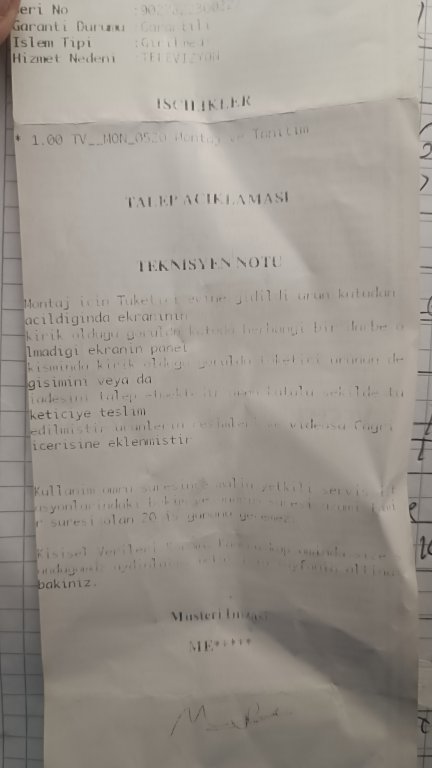 Seri No
Garanti Durumu :Garantili
Islem Tipi :Girilmedi
Hizmet Nedeni :TELEVIZYON
ISCILIKLER
* 1.00 TV__MON_0520 Montaj ve Tanitim
TALEP ACIKLAMASI
TEKNISYEN NOTU
Montaj icin Tuketici evine gidildi urun kutudan
acildiginda ekraninin
kirik oldugu goruldu kutuda herhangi bir darbe o
lmadigi ekranin panel
kisminda kirik oldugu goruldu tuketici urunun de
gisimini veya da
iadesini talep etmektedir urun kutulu sekilde tu
keticiye teslim
edilmistir urunlerin resimleri ve videosu Cagri
icerisine eklenmistir
Kullanim omru suresince malin yetkili servis ist
asyonlarindaki bakim ve onarim suresi azami tami
r suresi olan 20 is gununu gecemez.
Kisisel Verileri Koruma Kanunu kapsaminda size
bakiniz.
Musteri Imzasi
ME*****